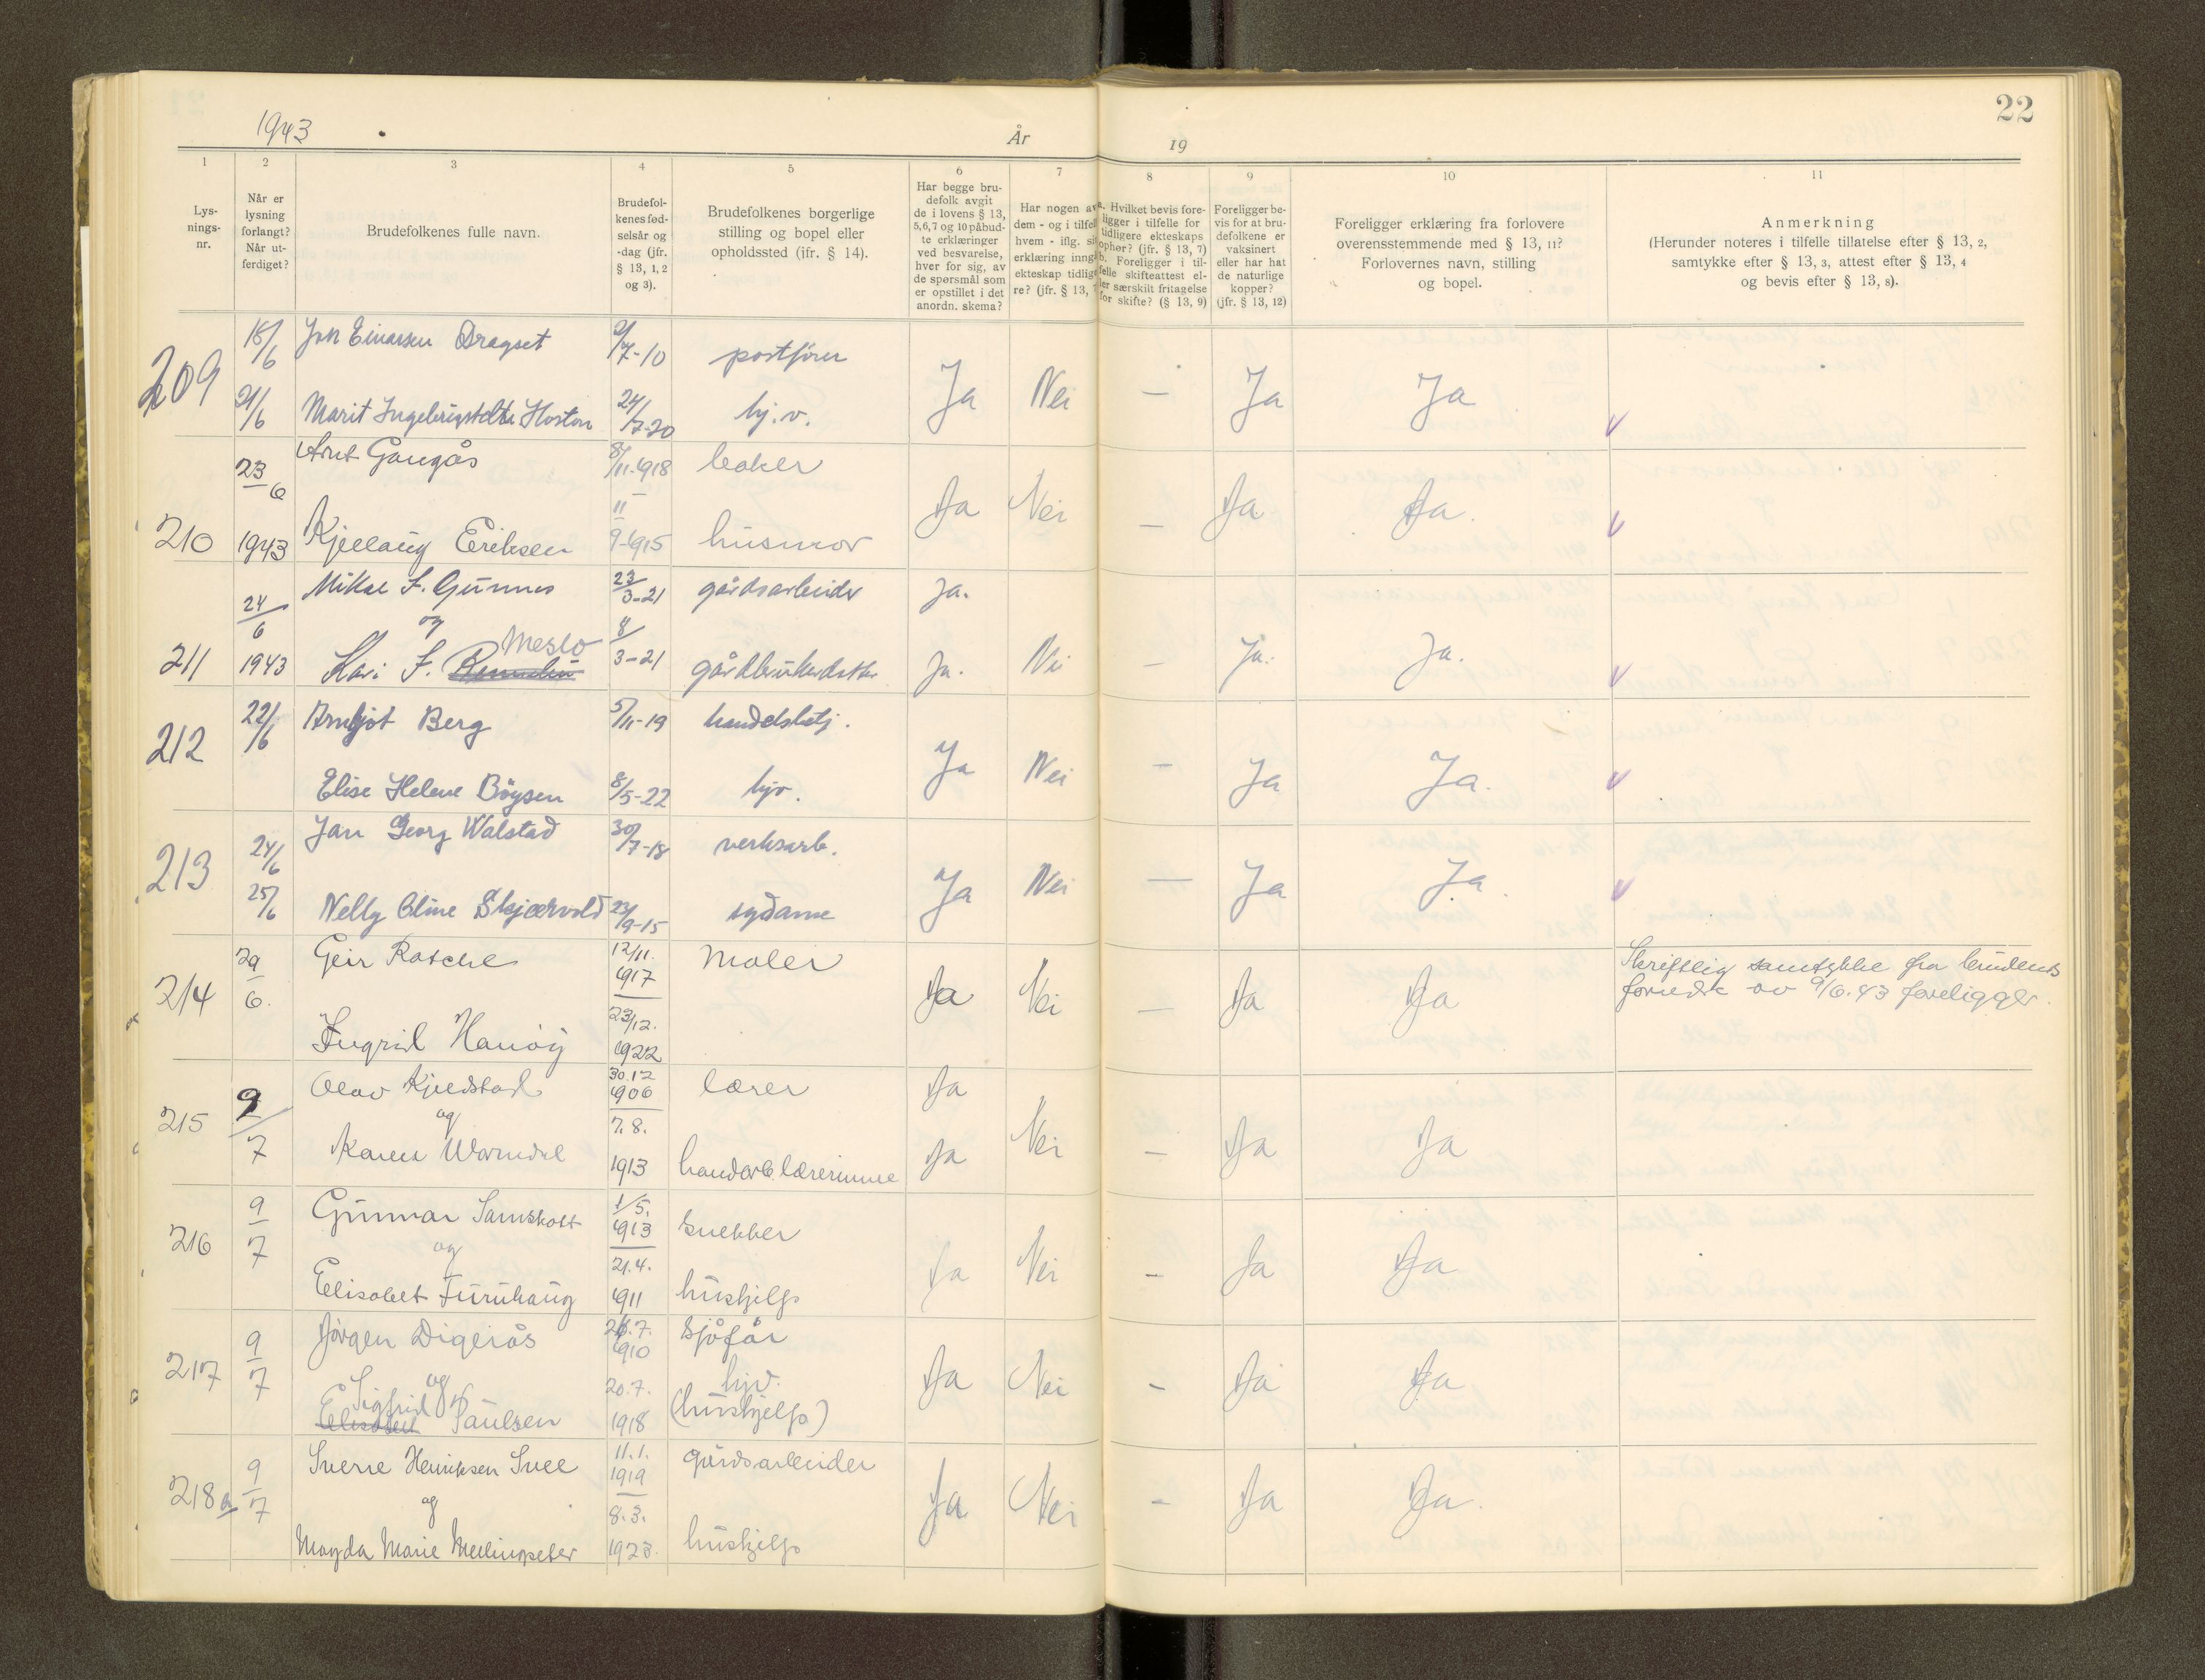 22
1943
År
19
1
2
3
4
5
6
7
8
9
10
11
Lys-
nings-
nr.
Når er
lysning
forlangt?
Når ut-
ferdiget?
Brudefolkenes fulle navn.
Brudefol-
kenes fød-
selsår og
-dag (jfr.
§ 13, 1, 2
og 3).
Brudefolkenes borgerlige
stilling og bopel eller
opholdssted (ifr. § 14).
Har begge bru-
defolk avgit
de i lovens § 13,
5,6,7 og 10 påbud-
te erklæringer
ved besvarelse,
hver for sig, av
de spørsmål som
er opstillet i det
anordn. skema?
Har nogen av
dem - og i tilfel
hvem - iflg. si
erklæring inng
ekteskap tidlige
re? (jfr. § 13,
a. Hvilket bevis fore-
ligger i tilfelle for
tidligere ekteskaps
ophør? (jfr. § 13, 7)
b. Foreligger i til-
felle skifteattest el-
ler særskilt fritagelse
for skifte? (§ 13, 9)
Foreligger be-
vis for at bru-
defolkene er
vaksinert
eller har hat
de naturlige
kopper?
(jfr. § 13, 12)
Foreligger erklæring fra forlovere
overensstemmende med § 13, 11?
Forlovernes navn, stilling
og bopel.
Anmerkning
(Herunder noteres i tilfelle tillatelse efter § 13, 2,
samtykke efter § 13, 3, attest efter § 13, 4
og bevis efter § 13, 8).
18/6 Jon Einarsen Dragset 2/7-10 postfører
209 Ja Nei — Ja Ja
21/6 Marit Hoston 24/7-20 hj.v. v
Arnt Gangås 8/11-1918 baker
23/6 Ja Nei — Ja Ja. v
210 1943 Kjellaug Eriksen 11/9-1915 husmor
Mikal F. Gunnes 23/3-21 gårdsarbeider Ja.
24/6 og
Meslo
211 1943 Kari F. 8/3-21 gårdbrukerdatter Ja. Nei — Ja. Ja. v
22/6 Arnljot Berg 5/11-19 handelsbetj.
212 Ja Nei — Ja Ja. v
Elise Helene Böysen 8/5-22 hjv.
Jan Georg Walstad 30/7-18 verksarb.
213 24/6 Ja Nei — Ja Ja. v
25/6 Nelly Oline Skjærvold 23/9-15 sydame
29/6. Geir Rasche 12/11. 1917 Maler
Skriftlig samtykke fra brudens
foreldre av 9/6.43 foreligger.
214 Ja Nei — Ja Ja
Ingrid Hanöy 23/12. 1922
Olav Kjelstad 30.12 1906 lærer Ja
215 9/7 og Nei — Ja Ja
Karen Warmdal 7.8. 1913 handarb. lærerinne Ja
9/7 Gunnar Samskott 1/5. 1913 Snekker
216 og Ja Nei — Ja Ja
Elisabet Furuhaug 21.4. 1911 hushjelp
Jörgen Digerås 26.7. 1910 Sjåfør
217 9/7 og Ja Nei — Ja Ja
Sigfrid hjv.
Elisabet Paulsen 20.7. 1918 (hushjelp)
Sverre Henriksen Svee 11.1. 1919 gårdsarbeider
218a 9/7 og Ja Nei — Ja Ja.
Magda Marie Mellingseter 8.3. 1923. hushjelp